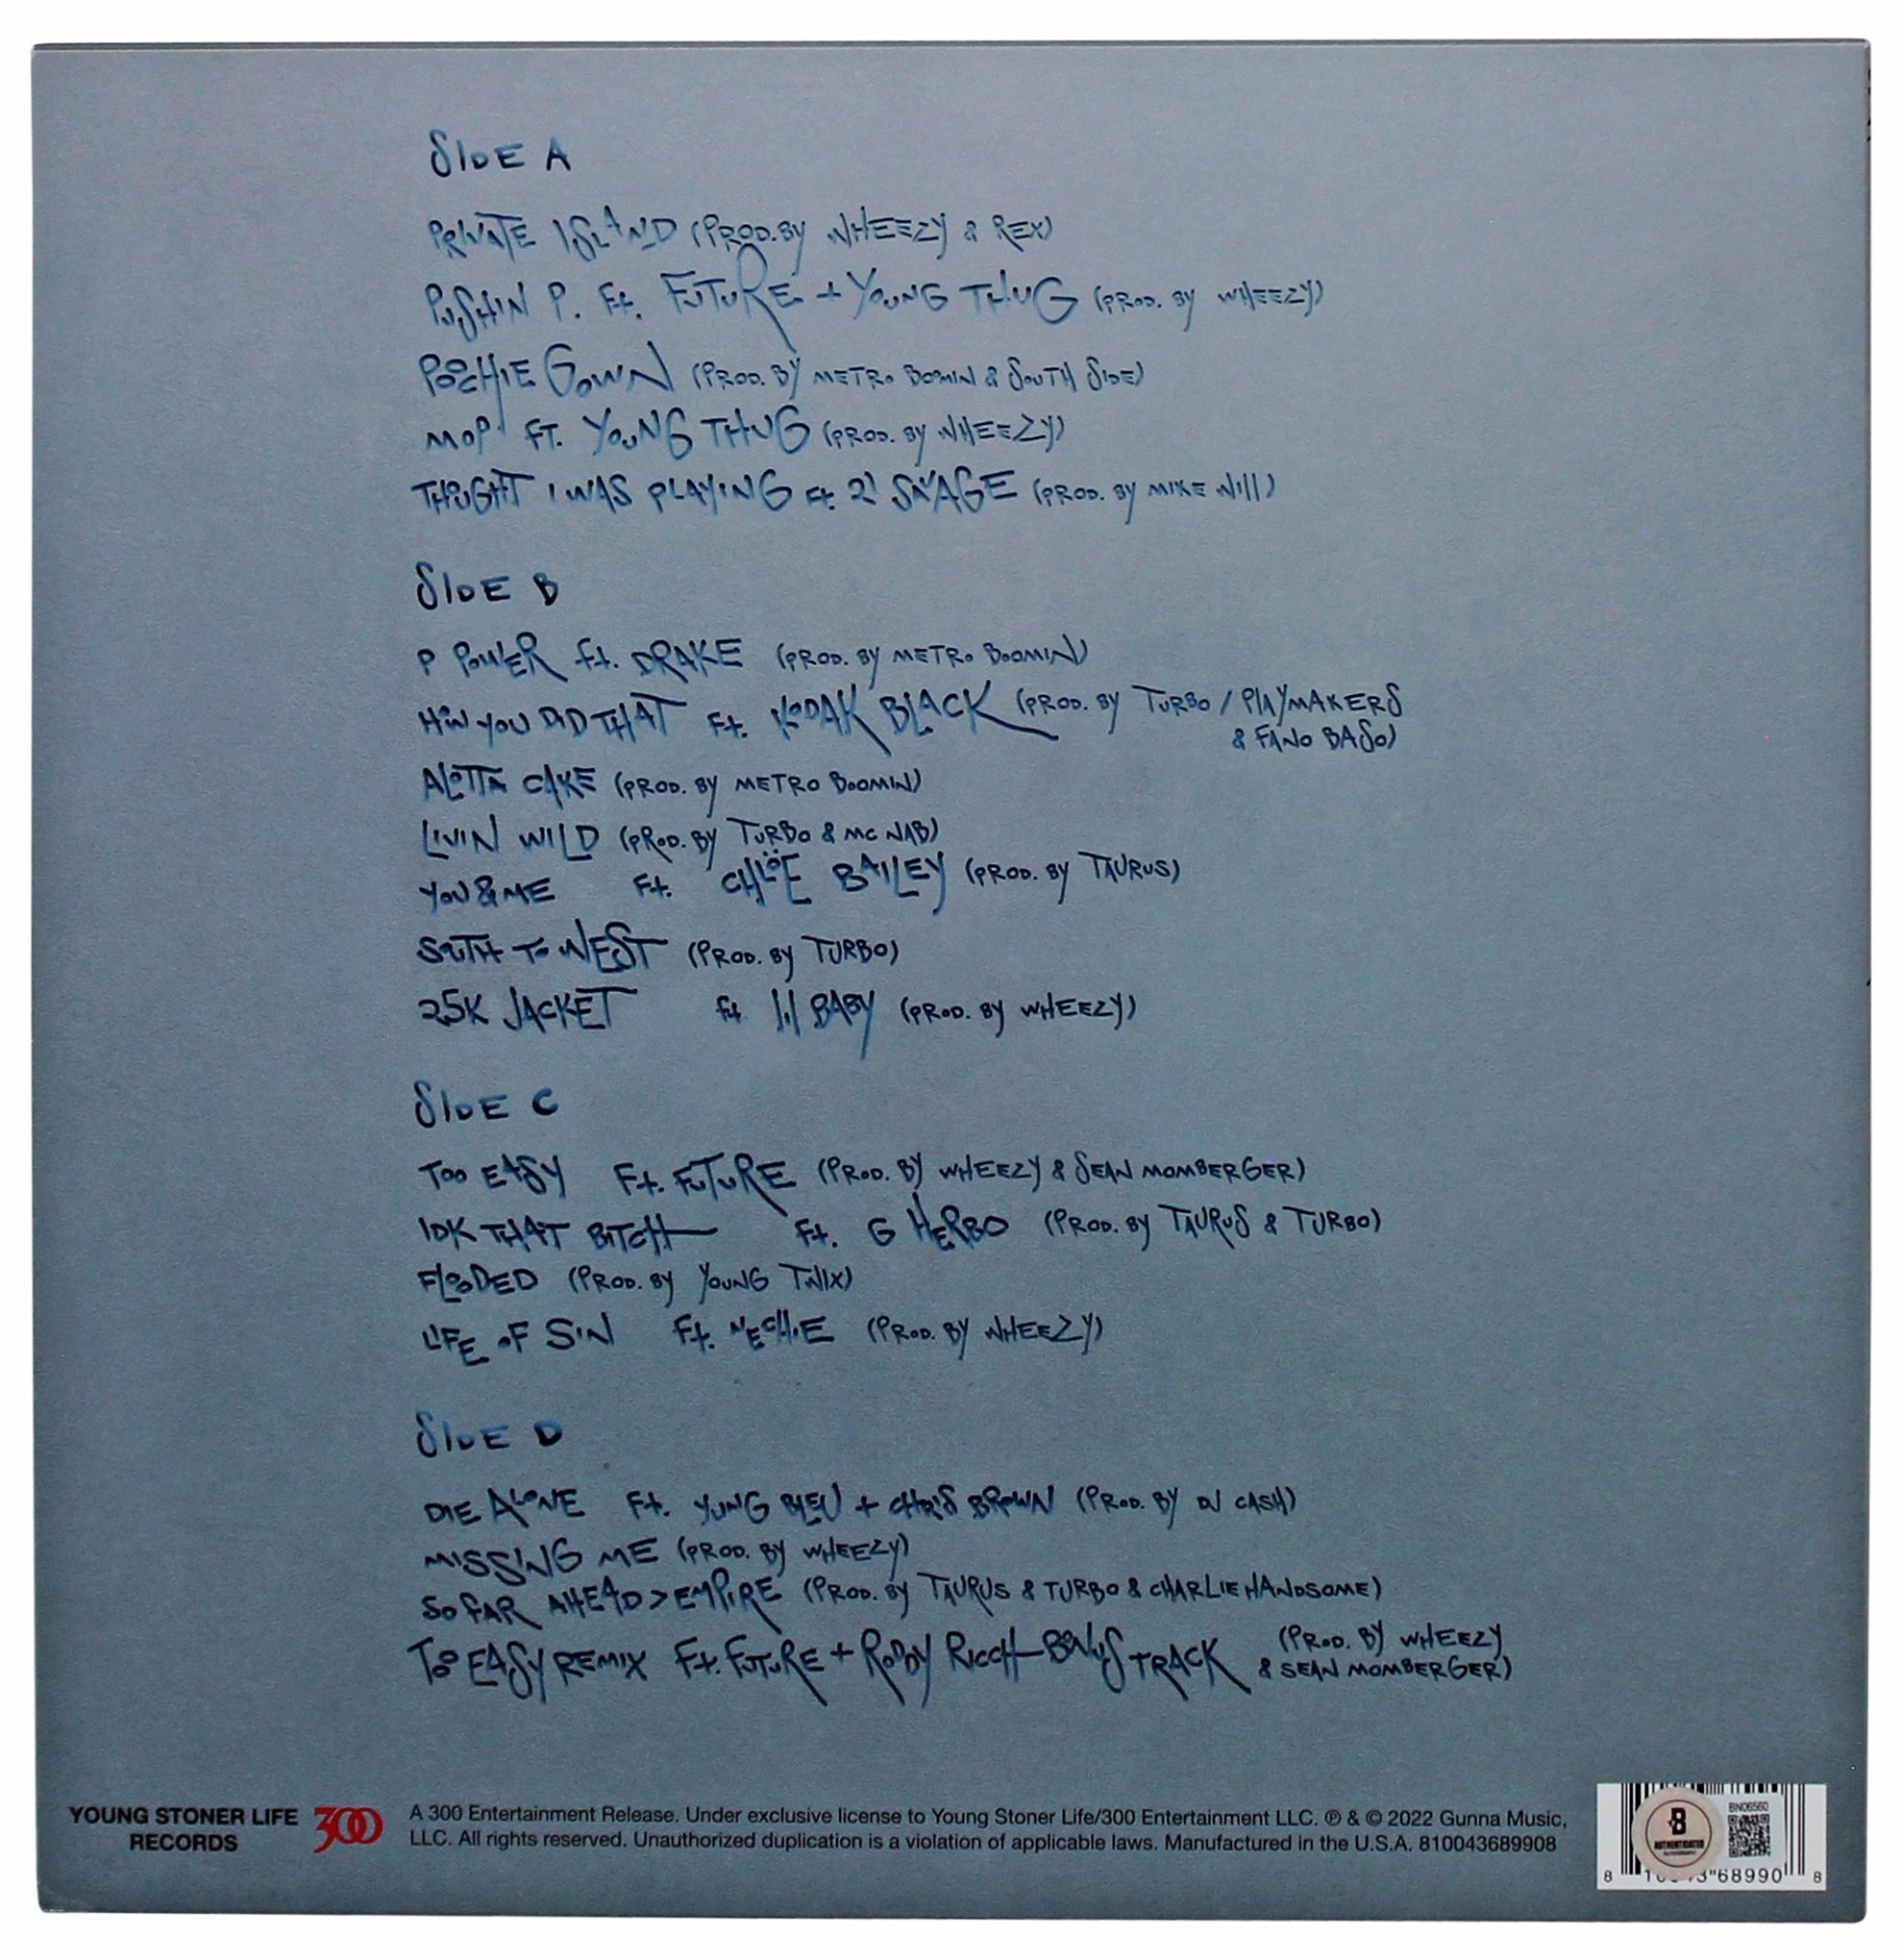 SIDE A
PRIVATE ISLAND (PROD. BY WHEEZY & REX)
PUSHIN P. Ft. FUTURE + YOUNG THUG (PROD. BY WHEEZY)
POOCHIE GOWN (PROD. BY METRO BOOMIN & SOUTH SIDE)
MOP FT. YOUNG THUG (PROD. BY WHEEZY)
THOUGHT I WAS PLAYING Ft. 21 SAVAGE (PROD. BY MIKE WILL)
SIDE B
P POWER ft. DRAKE (PROD. BY METRO BOOMIN)
HOW YOU DID THAT Ft. KODAK BLACK (PROD. BY TURBO / PLAYMAKERS
& FANO BASO)
ALOTTA CAKE (PROD. BY METRO BOOMIN)
LIVIN WILD (PROD. BY TURBO & MC NAB)
YOU & ME Ft. CHLÖE BAILEY (PROD. BY TAURUS)
SOUTH TO WEST (PROD. BY TURBO)
25K JACKET ft lil BABY (PROD. BY WHEEZY)
SIDE C
TOO EASY Ft. FUTURE (PROD. BY WHEEZY & SEAN MOMBERGER)
IDK THAT BITCH Ft. G HERBO (PROD. BY TAURUS & TURBO)
FLOODED (PROD. BY YOUNG TWIX)
LIFE OF SIN Ft. NECHIE (PROD. BY WHEEZY)
SIDE D
DIE ALONE Ft. YUNG BLEU + CHRIS BROWN (PROD. BY DJ CASH)
MISSING ME (PROD. BY WHEEZY)
SO FAR AHEAD > EMPIRE (PROD. BY TAURUS & TURBO & CHARLIE HANDSOME)
TOO EASY REMIX Ft. FUTURE + RODDY RICCH - BONUS TRACK (PROD. BY WHEEZY
& SEAN MOMBERGER)
YOUNG STONER LIFE
RECORDS
300
A 300 Entertainment Release. Under exclusive license to Young Stoner Life/300 Entertainment LLC. ℗ & © 2022 Gunna Music,
LLC. All rights reserved. Unauthorized duplication is a violation of applicable laws. Manufactured in the U.S.A. 810043689908
BN06560
B
AUTHENTICATED
8 68990 8